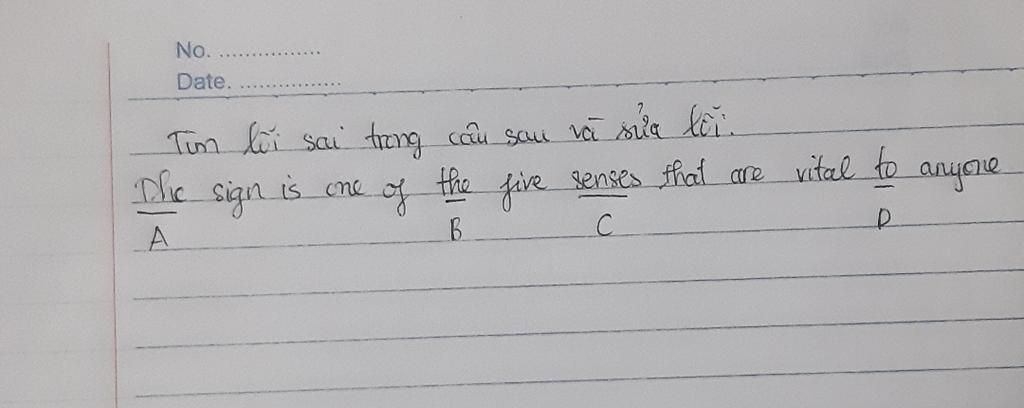 No. ................
Date. ................
Tìm lỗi sai trong câu sau và sửa lỗi.
The sign is one of the five senses that are vital to anyone
A B C D